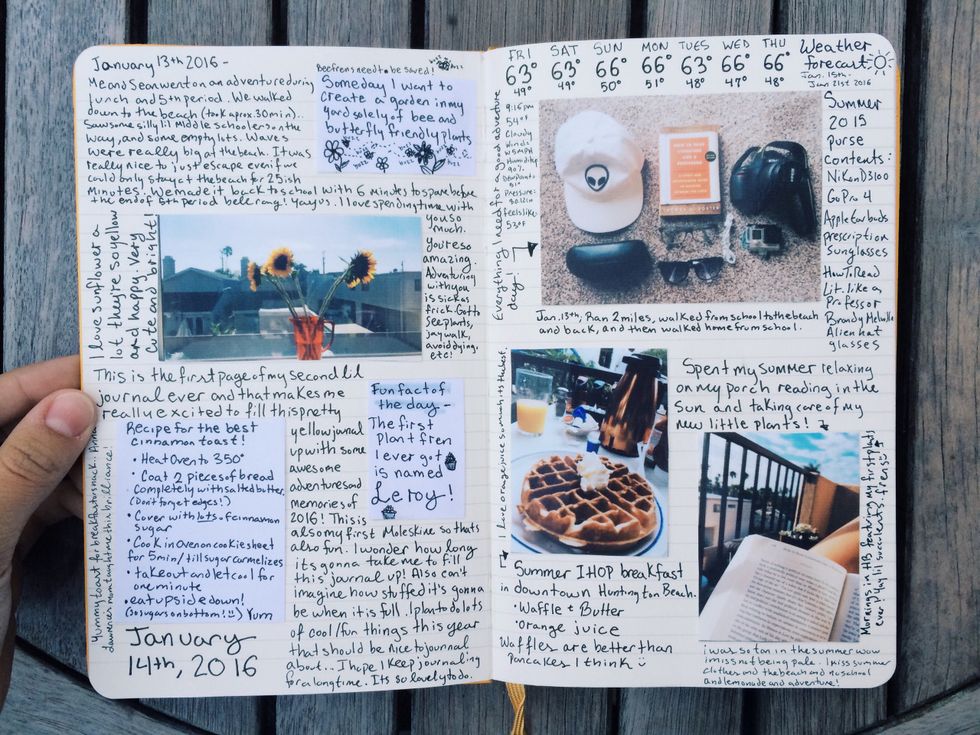 January 13th 2016 -
Me and Sean went on an adventure during
lunch and 5th period. We walked
down to the beach (took aprox. 30 min)..
Saw some silly lil middle schoolers on the
way, and some empty lots. Waves
were really big at the beach. It was
really nice to just escape even if we
could only stay at the beach for 25ish
minutes! We made it back to school with 6 minutes to spare before
the end of 5th period bell rang! Yay us. I love spending time with
you so
much.
you're so
amazing.
Adventuring
with you
is sick as
frick. Got to
see plants,
jay walk,
avoid dying,
etc!
Bee frens need to be saved!
Someday I want to
create a garden in my
yard solely of bee and
butterfly friendly plants
I love sunflower a
lot they're so yellow
and happy. Very
cute and bright!
This is the first page of my second lil
journal ever and that makes me
really excited to fill this pretty
yellow jurnal
up with some
awesome
adventures and
memories of
2016! This is
also my first Moleskine so thats
also fun. I wonder how long
its gonna take me to fill
this journal up! Also can't
imagine how stuffed it's gonna
be when it is full. I plan to do lots
of cool/fun things this year
that should be nice to journal
about.. I hope I keep journaling
for a long time. Its so lovely to do.
Fun fact of
the day -
The first
plant fren
I ever got
is named
Leroy!
Recipe for the best
cinnamon toast!
• Heat Oven to 350°
• Coat 2 pieces of bread
completely with salted butter.
(Don't forget edges!)
• Cover with lots of cinnamon
sugar
• Cook in Oven on cookie sheet
for 5 min/till sugar carmelizes
• take out and let cool for
one minute
• eat upside down!
(so sugars on bottom! :) ) Yum
Yummy toast for breakfast or snack.. Anna
lawrence's mom taught me this brilliance!
January
14th, 2016
FRI SAT SUN MON TUES WED THU
63° 63° 66° 66° 63° 66° 66°
49° 49° 50° 51° 48° 47° 48°
Weather
forecast
Jan. 15th -
Jan 21st 2016
9:16pm
54°F
Cloudy
Winds:
W 5 MPH
Humidity:
90%
Dewpoint:
51°
Pressure:
30.12in
feels like:
53°F
Everything I need for a good adventure
day!
HOW TO READ
LITERATURE
LIKE A
PROFESSOR
Summer
2015
purse
Contents:
Nikon D3100
GoPro 4
Apple earbuds
prescription
Sunglasses
How To Read
Lit. like a
Professor
Brandy Melville
Alien hat
glasses
Jan. 13th, Ran 2 miles, walked from school to the beach
and back, and then walked home from school.
I love orange juice so much its the best.
Summer IHOP breakfast
in downtown Huntington Beach.
• Waffle + Butter
• orange juice
Waffles are better than
Pancakes I think :)
Spent my summer relaxing
on my porch reading in the
sun and taking care of my
new little plants!
Mornings in HB featuring my first plants
ever. Yay lil succulents, frens!
i was so tan in the summer wow
i miss not being pale. I miss summer
clothes and the beach and no school
and lemonade and adventure!